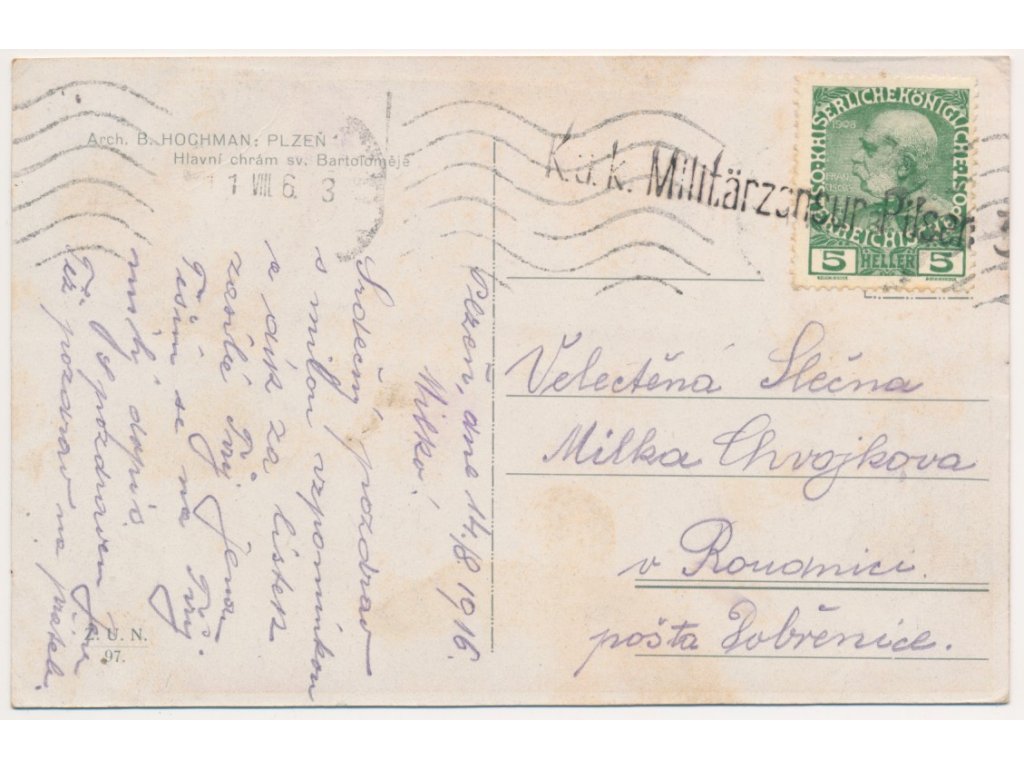 Arch. B. HOCHMAN: PLZEŇ
Hlavní chrám sv. Bartoloměje
1 VIII 6. 3
K.u.k. Militärzensur Pilsen
1908
SO·KAISERLICHEKÖNIGLICHE·ÖSTERREICHISCHE
5 HELLER 5
Plzeň, dne 14./8. 1916.
Milko!
Srdečný pozdrav
s milou vzpomínkou
a dík za lístek
zasílá Tvůj Jena
Těším se na Tvůj
milý dopis.
S pozdravem
Též pozdrav na přátele.
Velectěná Slečna
Milka Chvojkova
v Roudnici.
pošta Dobřenice.
Z. U. N.
97.